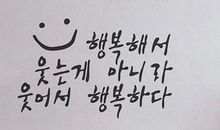 행복해서
웃는게 아니라
웃어서 행복하다